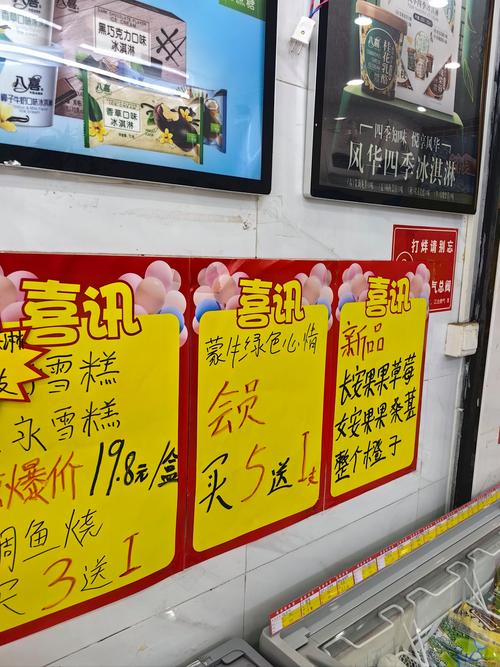 八喜
黑巧克力口味
冰淇淋
八喜
香草口味
冰淇淋
椰子牛奶口味冰淇淋
八喜
桂花乳酪
四季知味 悦享风华
风华四季冰淇淋
打烊请别忘
气总阀
喜讯
雪糕
冰雪糕
爆价 19.8元/盒
鱼烧
买3送1
喜讯
蒙牛绿色心情
会员
买5送1支
喜讯
新品
长安果果草莓
女安果果桑葚
整个橙子